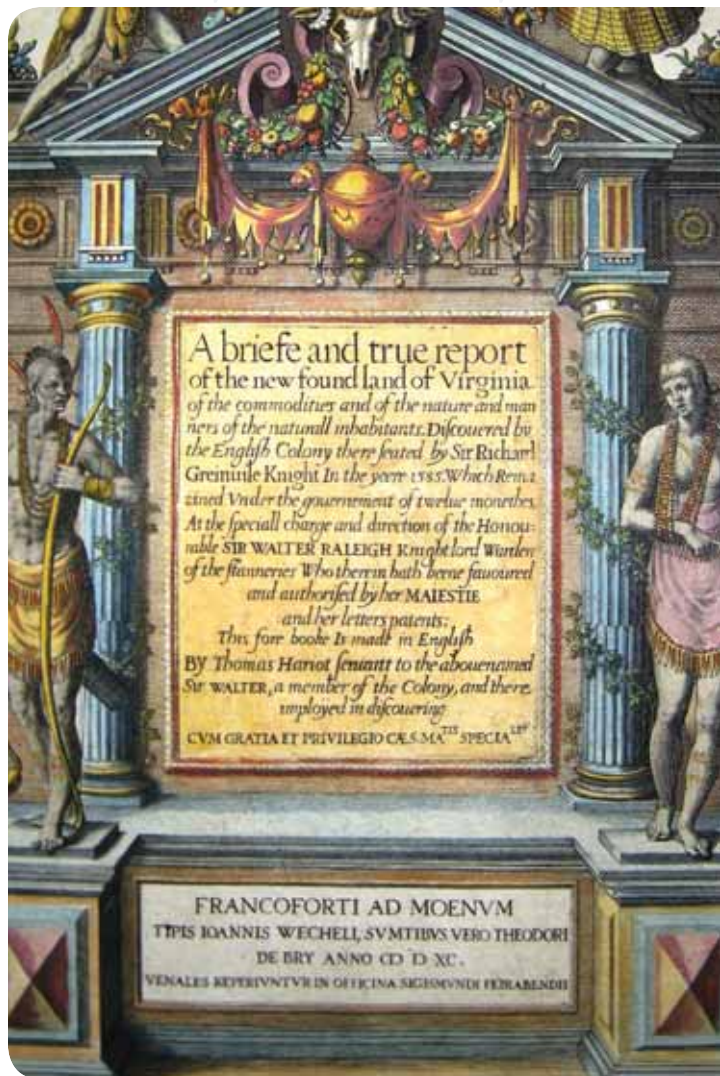 A briefe and true report
of the new found land of Virginia
of the commodities and of the nature and man
ners of the naturall inhabitants. Diſcouered by
the Engliſh Colony there ſeated by Sir Richard
Greinuile Knight In the yeere 1585. Which Rema
ined Vnder the gouernement of twelue monethes,
At the ſpeciall charge and direction of the Honou:
rable SIR WALTER RALEIGH Knight lord Warden
of the ſtanneries Who therein hath beene fauoured
and authoriſed by her MAIESTIE
and her letters patents:
This fore booke Is made in Engliſh
BY Thomas Hariot ſeruant to the abouenamed
Sir WALTER, a member of the Colony, and there
imployed in diſcouering
CVM GRATIA ET PRIVILEGIO CÆS. MA^TIS SPECIA^LI
FRANCOFORTI AD MOENVM
TYPIS IOANNIS WECHELI, SVMTIBVS VERO THEODORI
DE BRY ANNO CIↃ IↃ XC.
VENALES REPERIVNTVR IN OFFICINA SIGISMVNDI FEIRABENDII